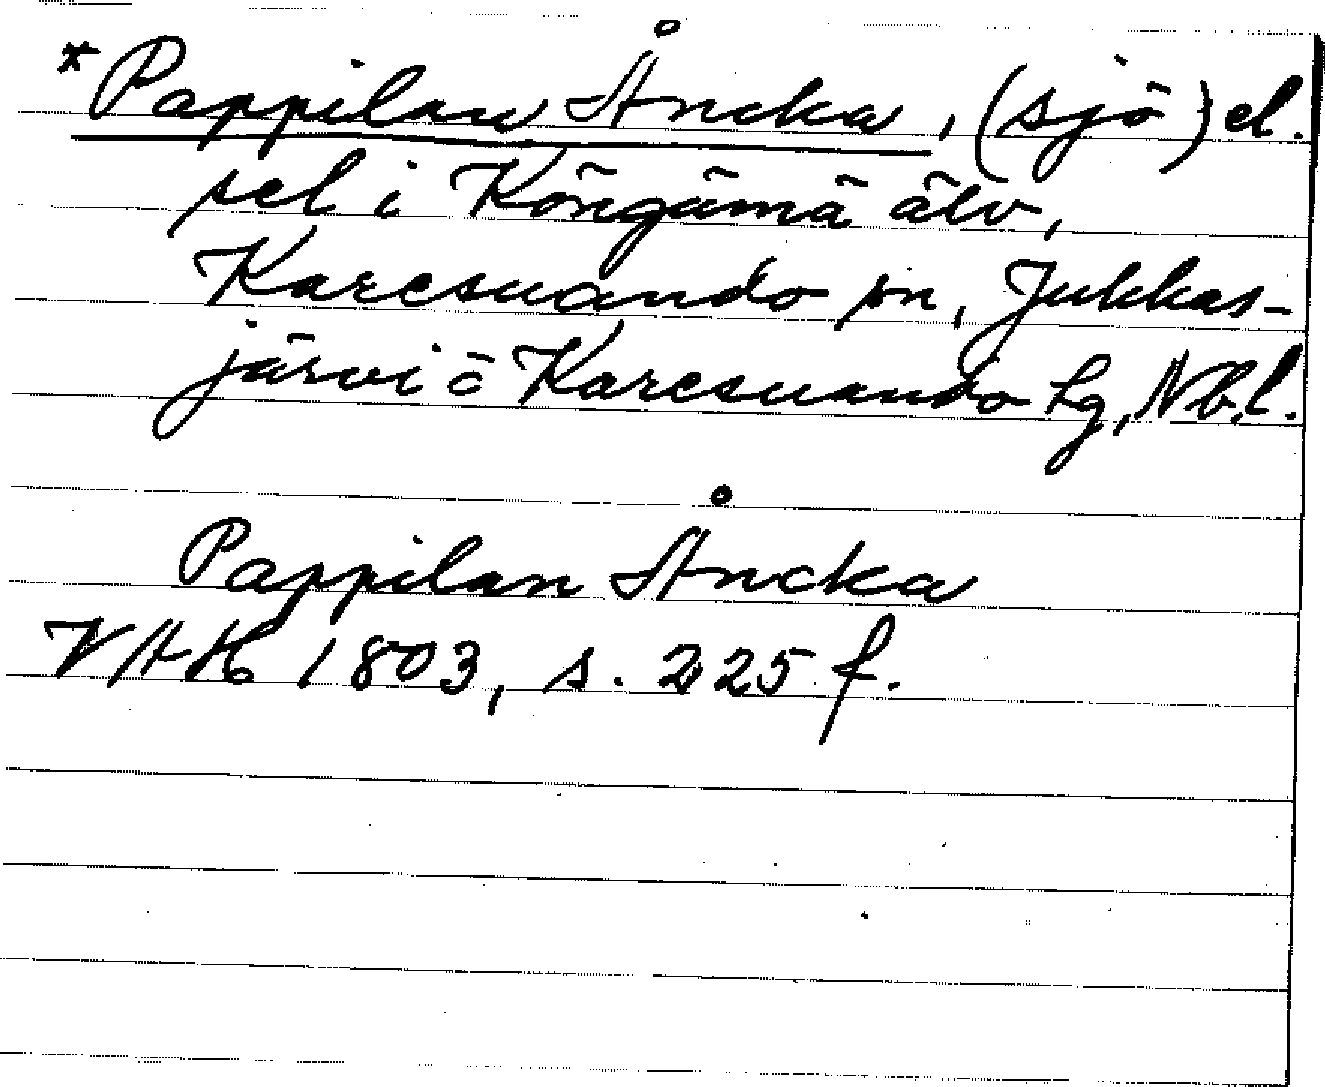 *Pappilan Åncka, (sjö) el.
sel i Köngämä älv,
Karesuando sn, Jukkas-
järvi o Karesuando lg, Nb.l.
Pappilan Åncka
VHH 1803, s. 225 f.